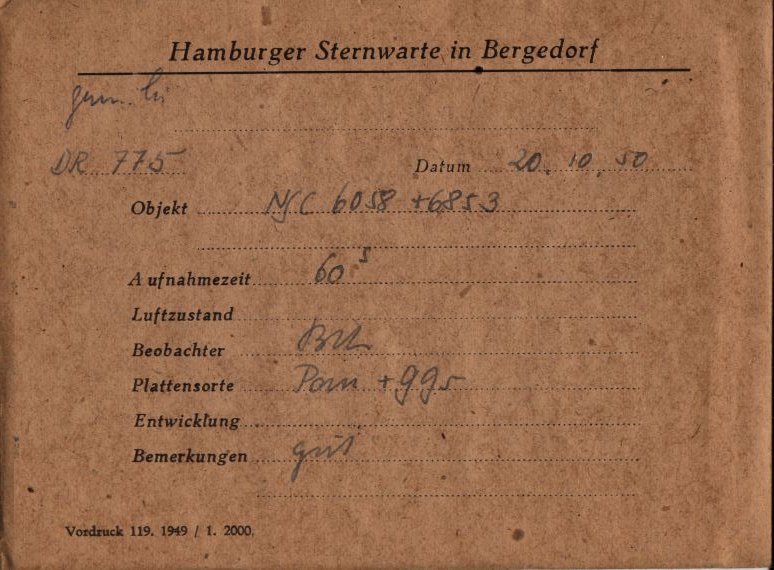 Hamburger Sternwarte in Bergedorf
DR 775 Datum 20.10.50
Objekt NGC 6058 + 6853
Aufnahmezeit 60 s
Luftzustand
Beobachter
Plattensorte Pan + GG5
Entwicklung
Bemerkungen gut
Vordruck 119. 1949 / 1. 2000.